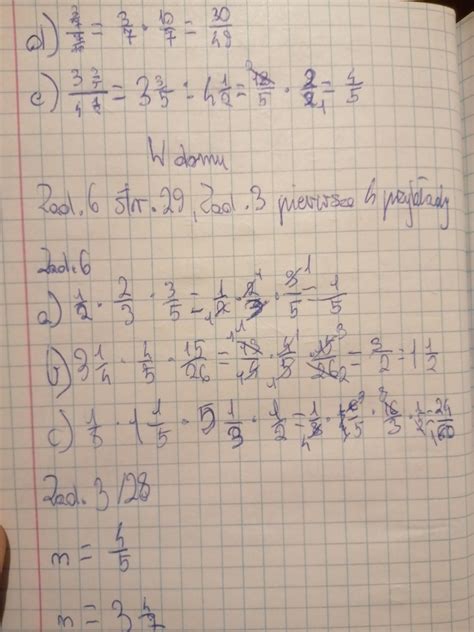 d) = 3/7 · 10/7 = 30/49
c) = 3 3/5 : 4 1/2 = 18/5 · 2/9 = 4/5
W domu
Zad. 6 str. 29, Zad. 3 pierwsze 4 przykłady
Zad. 6
a) 1/2 · 2/3 · 3/5 = 1/2 · 2/3 · 3/5 = 1/5
b) 3 1/4 · 4/5 · 15/26 = 13/4 · 4/5 · 15/26 = 3/2 = 1 1/2
c) 1/8 · 1 1/5 · 5 1/3 · 1/2 = 1/8 · 16/3 · 1/2
Zad. 3/28
n = 4/5
n = 3 4/7